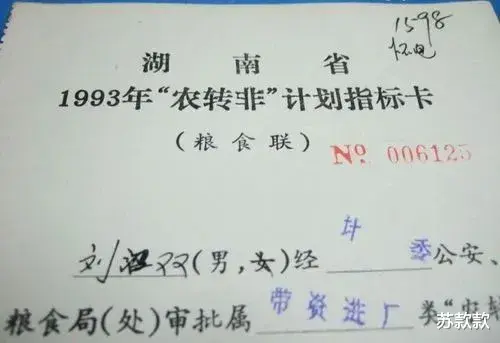 1598
湖南省
1993年“农转非”计划指标卡
(粮食联)
№ 006125
刘 双(男,女)经 计委 公安、
粮食局(处)审批属 带资进厂 类“农转
苏款款